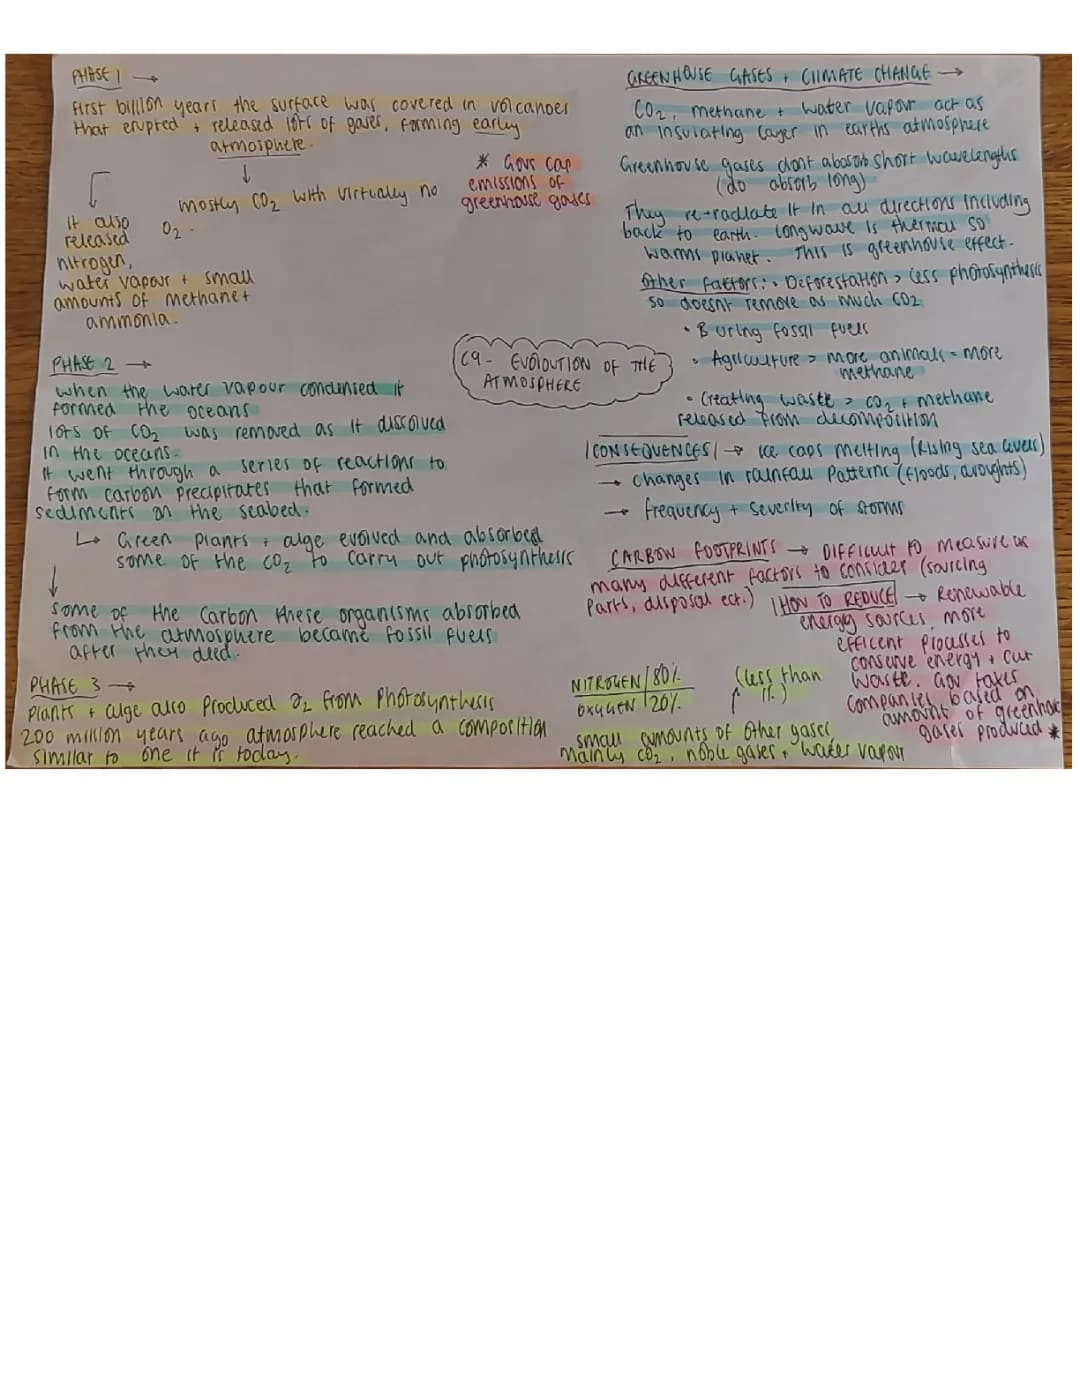 PHASE 1 →
First billion years the surface was covered in volcanoes
that erupted + released lots of gases, forming early
atmosphere.
↓
mostly CO2 with virtually no
O2.
It also
released
nitrogen,
water vapour + small
amounts of methane +
ammonia.
* Govs cap
emissions of
greenhouse gases
C9 - EVOLUTION OF THE
ATMOSPHERE
PHASE 2 →
when the water vapour condensed it
formed the oceans
lots of CO2 was removed as it dissolved
in the oceans.
It went through a series of reactions to
form carbon precipitates that formed
sediments on the seabed.
↳ Green plants + alge evolved and absorbed
some of the CO2 to carry out photosynthesis
↓
some of the carbon these organisms absorbed
from the atmosphere became fossil fuels
after they died.
PHASE 3 →
Plants + alge also produced O2 from photosynthesis
200 million years ago atmosphere reached a composition
similar to one it is today.
GREENHOUSE GASES + CLIMATE CHANGE →
CO2, methane + water vapour act as
an insulating layer in earths atmosphere
Greenhouse gases dont abosorb short wavelengths
(do absorb long)
They re-radiate it in all directions including
back to earth. longwave is thermal so
warms planet. This is greenhouse effect.
Other factors: • Deforestation > less photosynthesis
so doesnt remove as much CO2
• Buring fossil fuels
• Agriculture > more animals = more
methane
• Creating waste > CO2 + methane
released from decomposition
CONSEQUENCES → Ice caps melting (Rising sea levels)
→ changes in rainfall patterns (floods, droughts)
→ frequency + severity of storms
CARBON FOOTPRINTS → DIFFICULT to measure as
many different factors to consider (sourcing
parts, disposal ect.) HOW TO REDUCE → Renewable
energy sources, more
efficent processes to
conserve energy + cut
waste. Gov taxes
companies based on
amount of greenhouse
gases produced *
NITROGEN 80%
OXYGEN 20%
(less than
1%)
small amounts of other gases,
mainly CO2, noble gases + water vapour